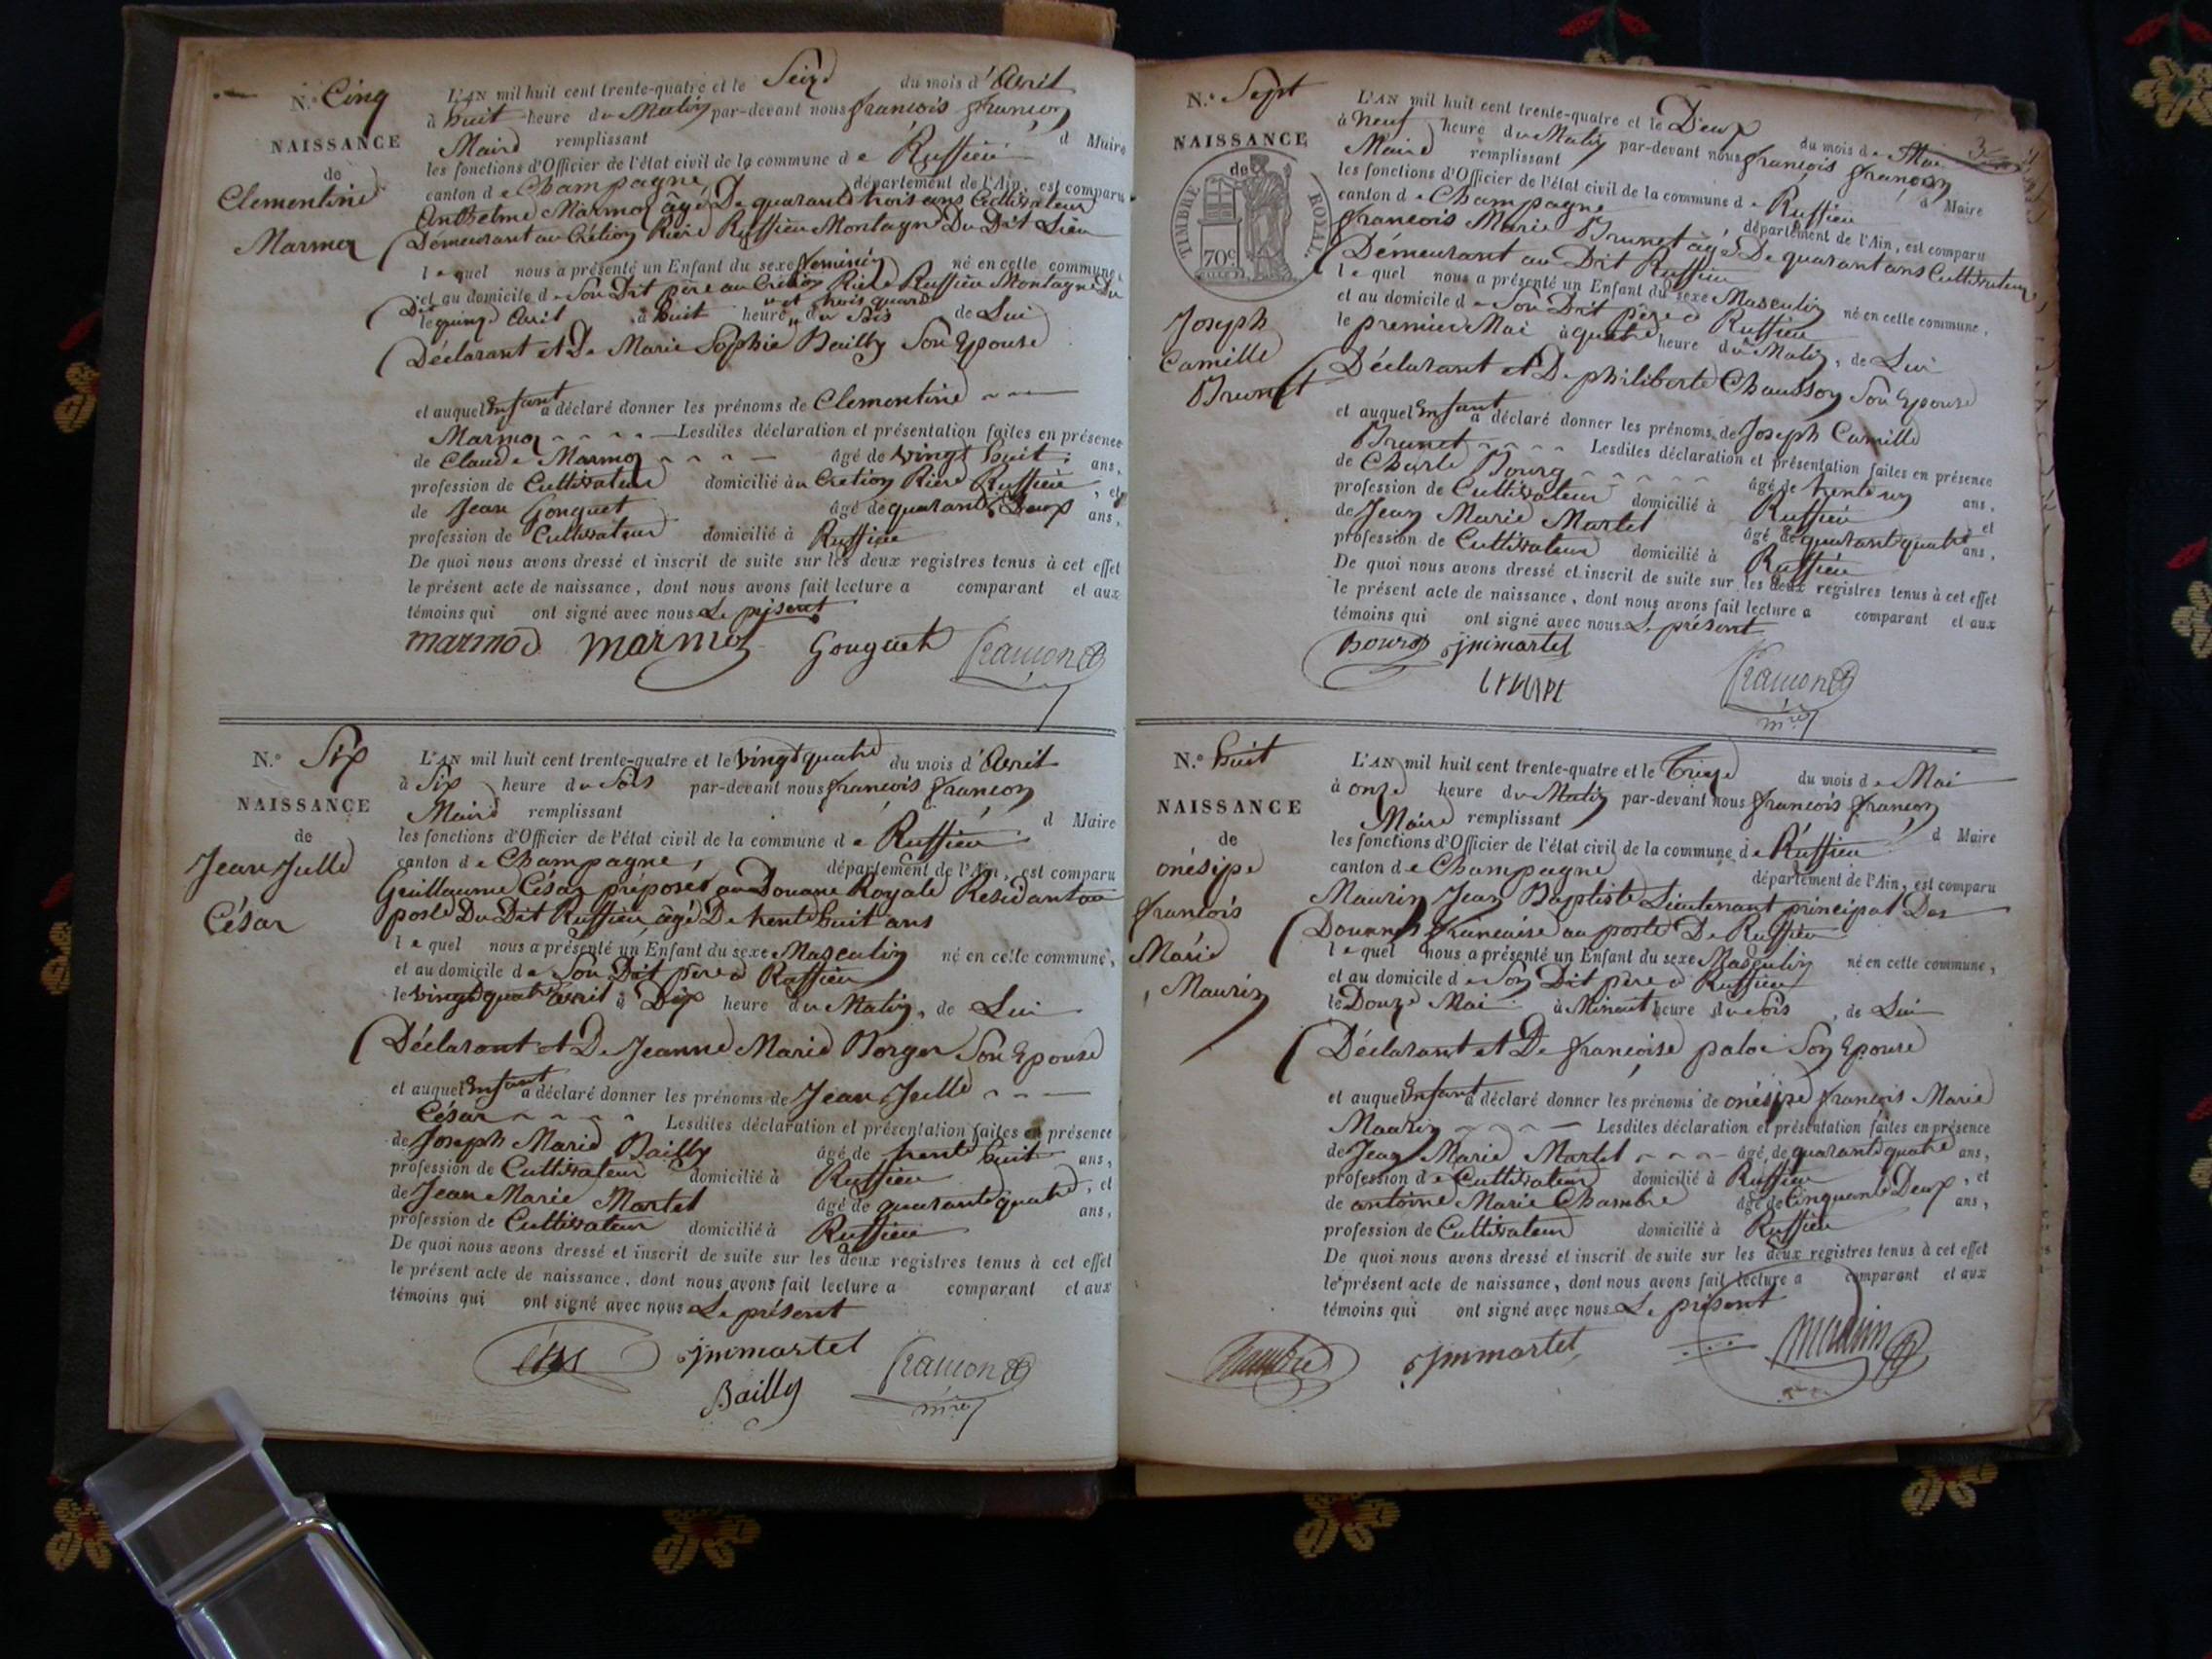 N.º Cinq
NAISSANCE
de
Clementine
Marmor
L'AN mil huit cent trente-quatre et le Seize du mois d'Avril
à huit heure du Matin par-devant nous françois françon
Maire remplissant d Maire
les fonctions d'Officier de l'état civil de la commune de Ruffieu
canton de Champagne, département de l'Ain, est comparu
Anthelme Marmor âgé De quarante trois ans Cultivateur
Démeurant au Crétion Rière Ruffieu Montagne Du Dit Lieu
lequel nous a présenté un Enfant du sexe feminin né en cette commune,
et au domicile de Son Dit père au Crétion Rière Ruffieu Montagne Du
Dit
le quinze Avril à huit heure et trois quard du Soir de Lui
Déclarant et De Marie Sophie Bailly Son Epouse
et auquel Enfant a déclaré donner les prénoms de Clementine
Marmor Lesdites déclaration et présentation faites en présence
de Claude Marmor âgé de vingt huit ans,
profession de Cultivateur domicilié au Cretion Rière Ruffieu, et
de Jean Gonguet âgé de quarante Deux ans,
profession de Cultivateur domicilié à Ruffieu
De quoi nous avons dressé et inscrit de suite sur les deux registres tenus à cet effet
le présent acte de naissance, dont nous avons fait lecture a comparant et aux
témoins qui ont signé avec nous Le présent
marmod marmoz Gonguet francon
N.º Six
NAISSANCE
de
Jean Julle
César
L'AN mil huit cent trente-quatre et le vingt quatre du mois d'Avril
à Six heure du Soir par-devant nous françois françon
Maire remplissant d Maire
les fonctions d'Officier de l'état civil de la commune de Ruffieu
canton de Champagne, département de l'Ain, est comparu
Guillaume César préposés au Douane Royale Residant au
poste Du Dit Ruffieu âgé De trente huit ans
lequel nous a présenté un Enfant du sexe Masculin né en cette commune,
et au domicile de Son Dit père à Ruffieu
le vingt quatre avril à Dix heure du Matin, de Lui
Déclarant et De Jeanne Marie Borger Son Epouse
et auquel Enfant a déclaré donner les prénoms de Jean Julle
César Lesdites déclaration et présentation faites en présence
de Joseph Marie Bailly âgé de trente huit ans,
profession de Cultivateur domicilié à Ruffieu, et
de Jean Marie Martel âgé de quarante quatre ans,
profession de Cultivateur domicilié à Ruffieu
De quoi nous avons dressé et inscrit de suite sur les deux registres tenus à cet effet
le présent acte de naissance, dont nous avons fait lecture a comparant et aux
témoins qui ont signé avec nous Le présent
jmmartel francon
Bailly mre
N.º Sept
NAISSANCE
de
TIMBRE ROYAL
70c
Joseph
Camille
Brunet
L'AN mil huit cent trente-quatre et le Deux du mois de Mai
à Neuf heure du Matin par-devant nous françois françon
Maire remplissant d Maire
les fonctions d'Officier de l'état civil de la commune de Ruffieu
canton de Champagne département de l'Ain, est comparu
françois Marie Brunet âgé De quarant ans Cultivateur
Démeurant au Dit Ruffieu
lequel nous a présenté un Enfant du sexe Masculin né en cette commune,
et au domicile de Son Dit père à Ruffieu
le premier Mai à quatre heure du Matin, de Lui
Déclarant et De philiberte Chausson Son Epouse
et auquel Enfant a déclaré donner les prénoms de Joseph Camille
Brunet Lesdites déclaration et présentation faites en présence
de Charle Bourg âgé de trente un ans,
profession de Cultivateur domicilié à Ruffieu et
de Jean Marie Martel âgé de quarante quatre ans,
profession de Cultivateur domicilié à Ruffieu
De quoi nous avons dressé et inscrit de suite sur les deux registres tenus à cet effet
le présent acte de naissance, dont nous avons fait lecture a comparant et aux
témoins qui ont signé avec nous Le présent
Bourg jmmartel
francon
mre
N.º huit
NAISSANCE
de
onésipe
françois
Marie
Maurin
L'AN mil huit cent trente-quatre et le Treize du mois de Mai
à onze heure du Matin par-devant nous françois françon
Maire remplissant d Maire
les fonctions d'Officier de l'état civil de la commune de Ruffieu
canton de Champagne département de l'Ain, est comparu
Maurin Jean Baptiste Lieutenant principal Des
Douannes francaise au poste De Ruffieu
lequel nous a présenté un Enfant du sexe Masculin né en cette commune,
et au domicile de Son Dit père à Ruffieu
le Douze Mai à Minuit heure du Soir, de Lui
Déclarant et De françoise paloi Son Epouse
et auquel Enfant a déclaré donner les prénoms de onésipe françois Marie
Maurin Lesdites déclaration et présentation faites en présence
de Jean Marie Martel âgé de quarante quatre ans,
profession de Cultivateur domicilié à Ruffieu, et
de antoine Marie Chambre âgé de Cinquante Deux ans,
profession de Cultivateur domicilié à Ruffieu
De quoi nous avons dressé et inscrit de suite sur les deux registres tenus à cet effet
le présent acte de naissance, dont nous avons fait lecture a comparant et aux
témoins qui ont signé avec nous Le présent
Chambre jmmartel maurin